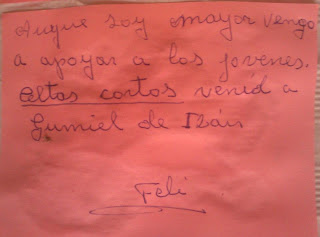 Auque soy mayor vengo
a apoyar a los jovenes.
Altos cortos venid a
Gumiel de Izán
Feli